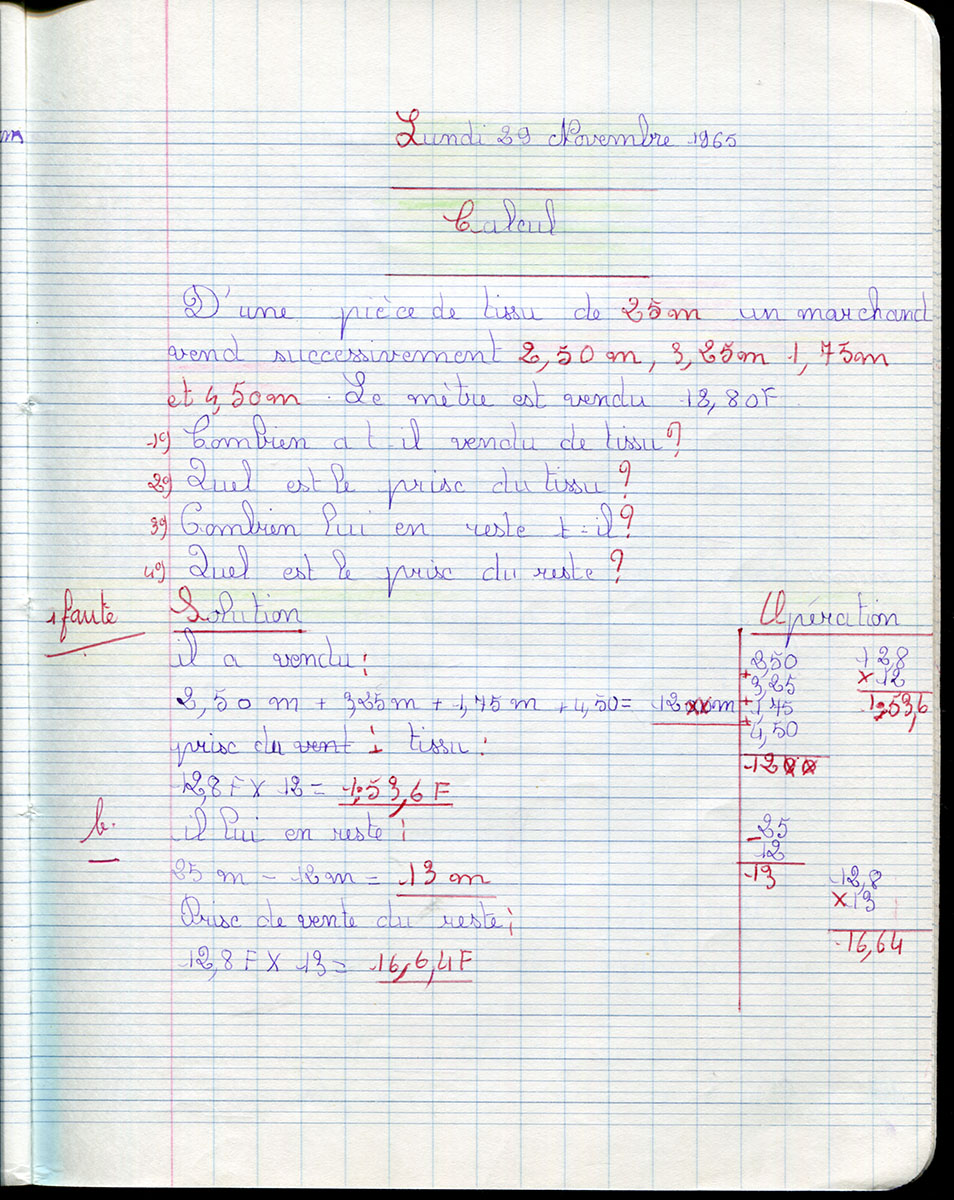 Lundi 29 Novembre 1965
Calcul
D'une pièce de tissu de 25m un marchand
vend successivement 2,50 m, 3,25m 1,75m
et 4,50m. Le mètre est vendu 12,80F
1º) Combien a t-il vendu de tissu?
2º) Quel est le prisc du tissu?
3º) Combien lui en reste t-il?
4º) Quel est le prisc du reste?
1 faute
Solution
Opération
il a vendu:
2,50 m + 3,25m + 1,75 m + 4,50 = 12 m
prisc du vent tissu:
12,8 F X 12 = 153,6 F
b.
il lui en reste:
25 m - 12 m = 13 m
Prisc de vente du reste:
12,8 F X 13 = 166,4F
2,50
+ 3,25
+ 1,75
+ 4,50
1200
12,8
X 12
153,6
25
- 12
13
12,8
X 13
16,64